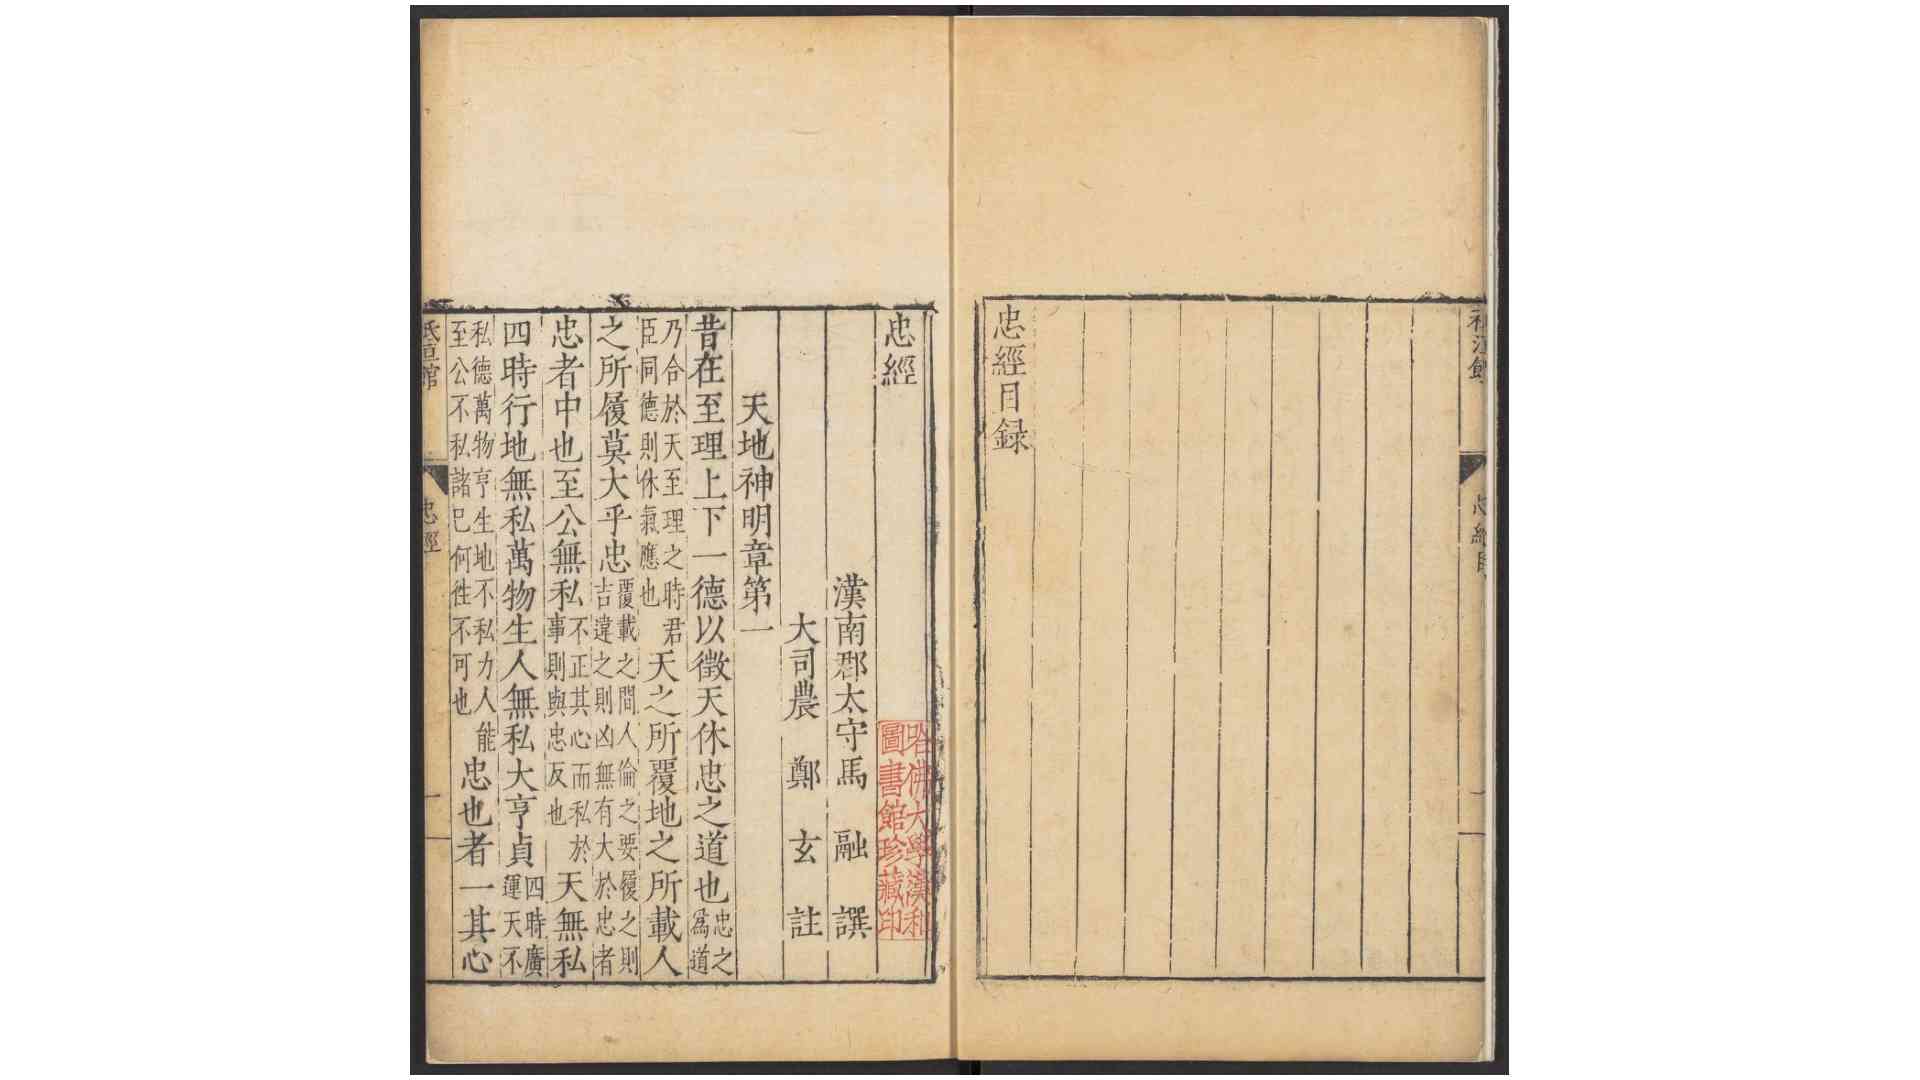 忠經目録
忠經
漢南郡太守馬融撰
大司農鄭玄註
天地神明章第一
昔在至理上下一德以徵天休忠之道也忠之爲道
乃合於天至理之時君臣同德則休氣應也天之所覆地之所載人
之所履莫大乎忠覆載之間人倫之要履之則吉違之則凶無有大於忠者
忠者中也至公無私不正其心而私於事則與忠反也天無私
四時行地無私萬物生人無私大亨貞四時廣運天不
私德萬物亨生地不私力人能至公不私諸已何徃不可也忠也者一其心
哈佛大學漢和圖書館珍藏印
忠經